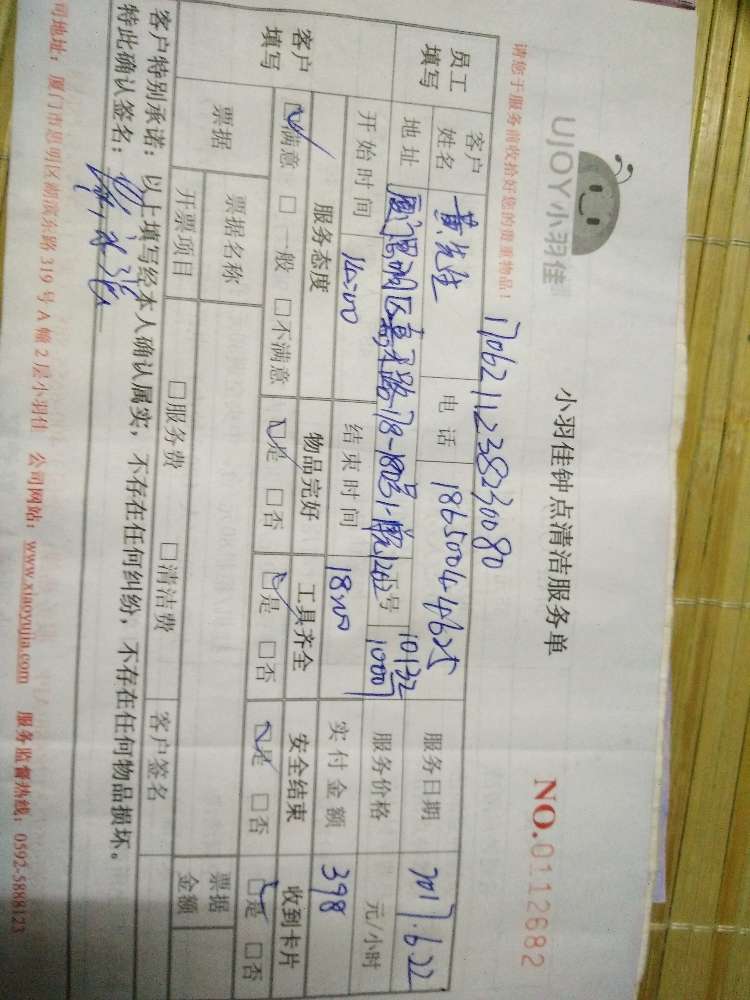 UJOY小羽佳
小羽佳钟点清洁服务单
NO.0112682
请您于服务前收拾好您的贵重物品！
1706211238230080
员工填写 客户姓名 黄先生 电话 18650044625 服务日期 2017.6.22
地址 工号 10132 10007 服务价格 元/小时
开始时间 14:00 结束时间 18:00 实付金额 398
客户填写 服务态度 物品完好 工具齐全 安全结束 收到卡片
☑满意 □一般 □不满意 ☑是 □否 ☑是 □否 ☑是 □否 ☑是 □否
票据 票据名称 □服务费 □清洁费 客户签名 票据金额
开票项目
客户特别承诺：以上填写经本人确认属实，不存在任何纠纷，不存在任何物品损坏。
特此确认签名：
司地址：厦门市思明区湖滨东路319号A幢2层小羽佳 公司网站：www.xiaoyujia.com 服务监督热线：0592-5888123